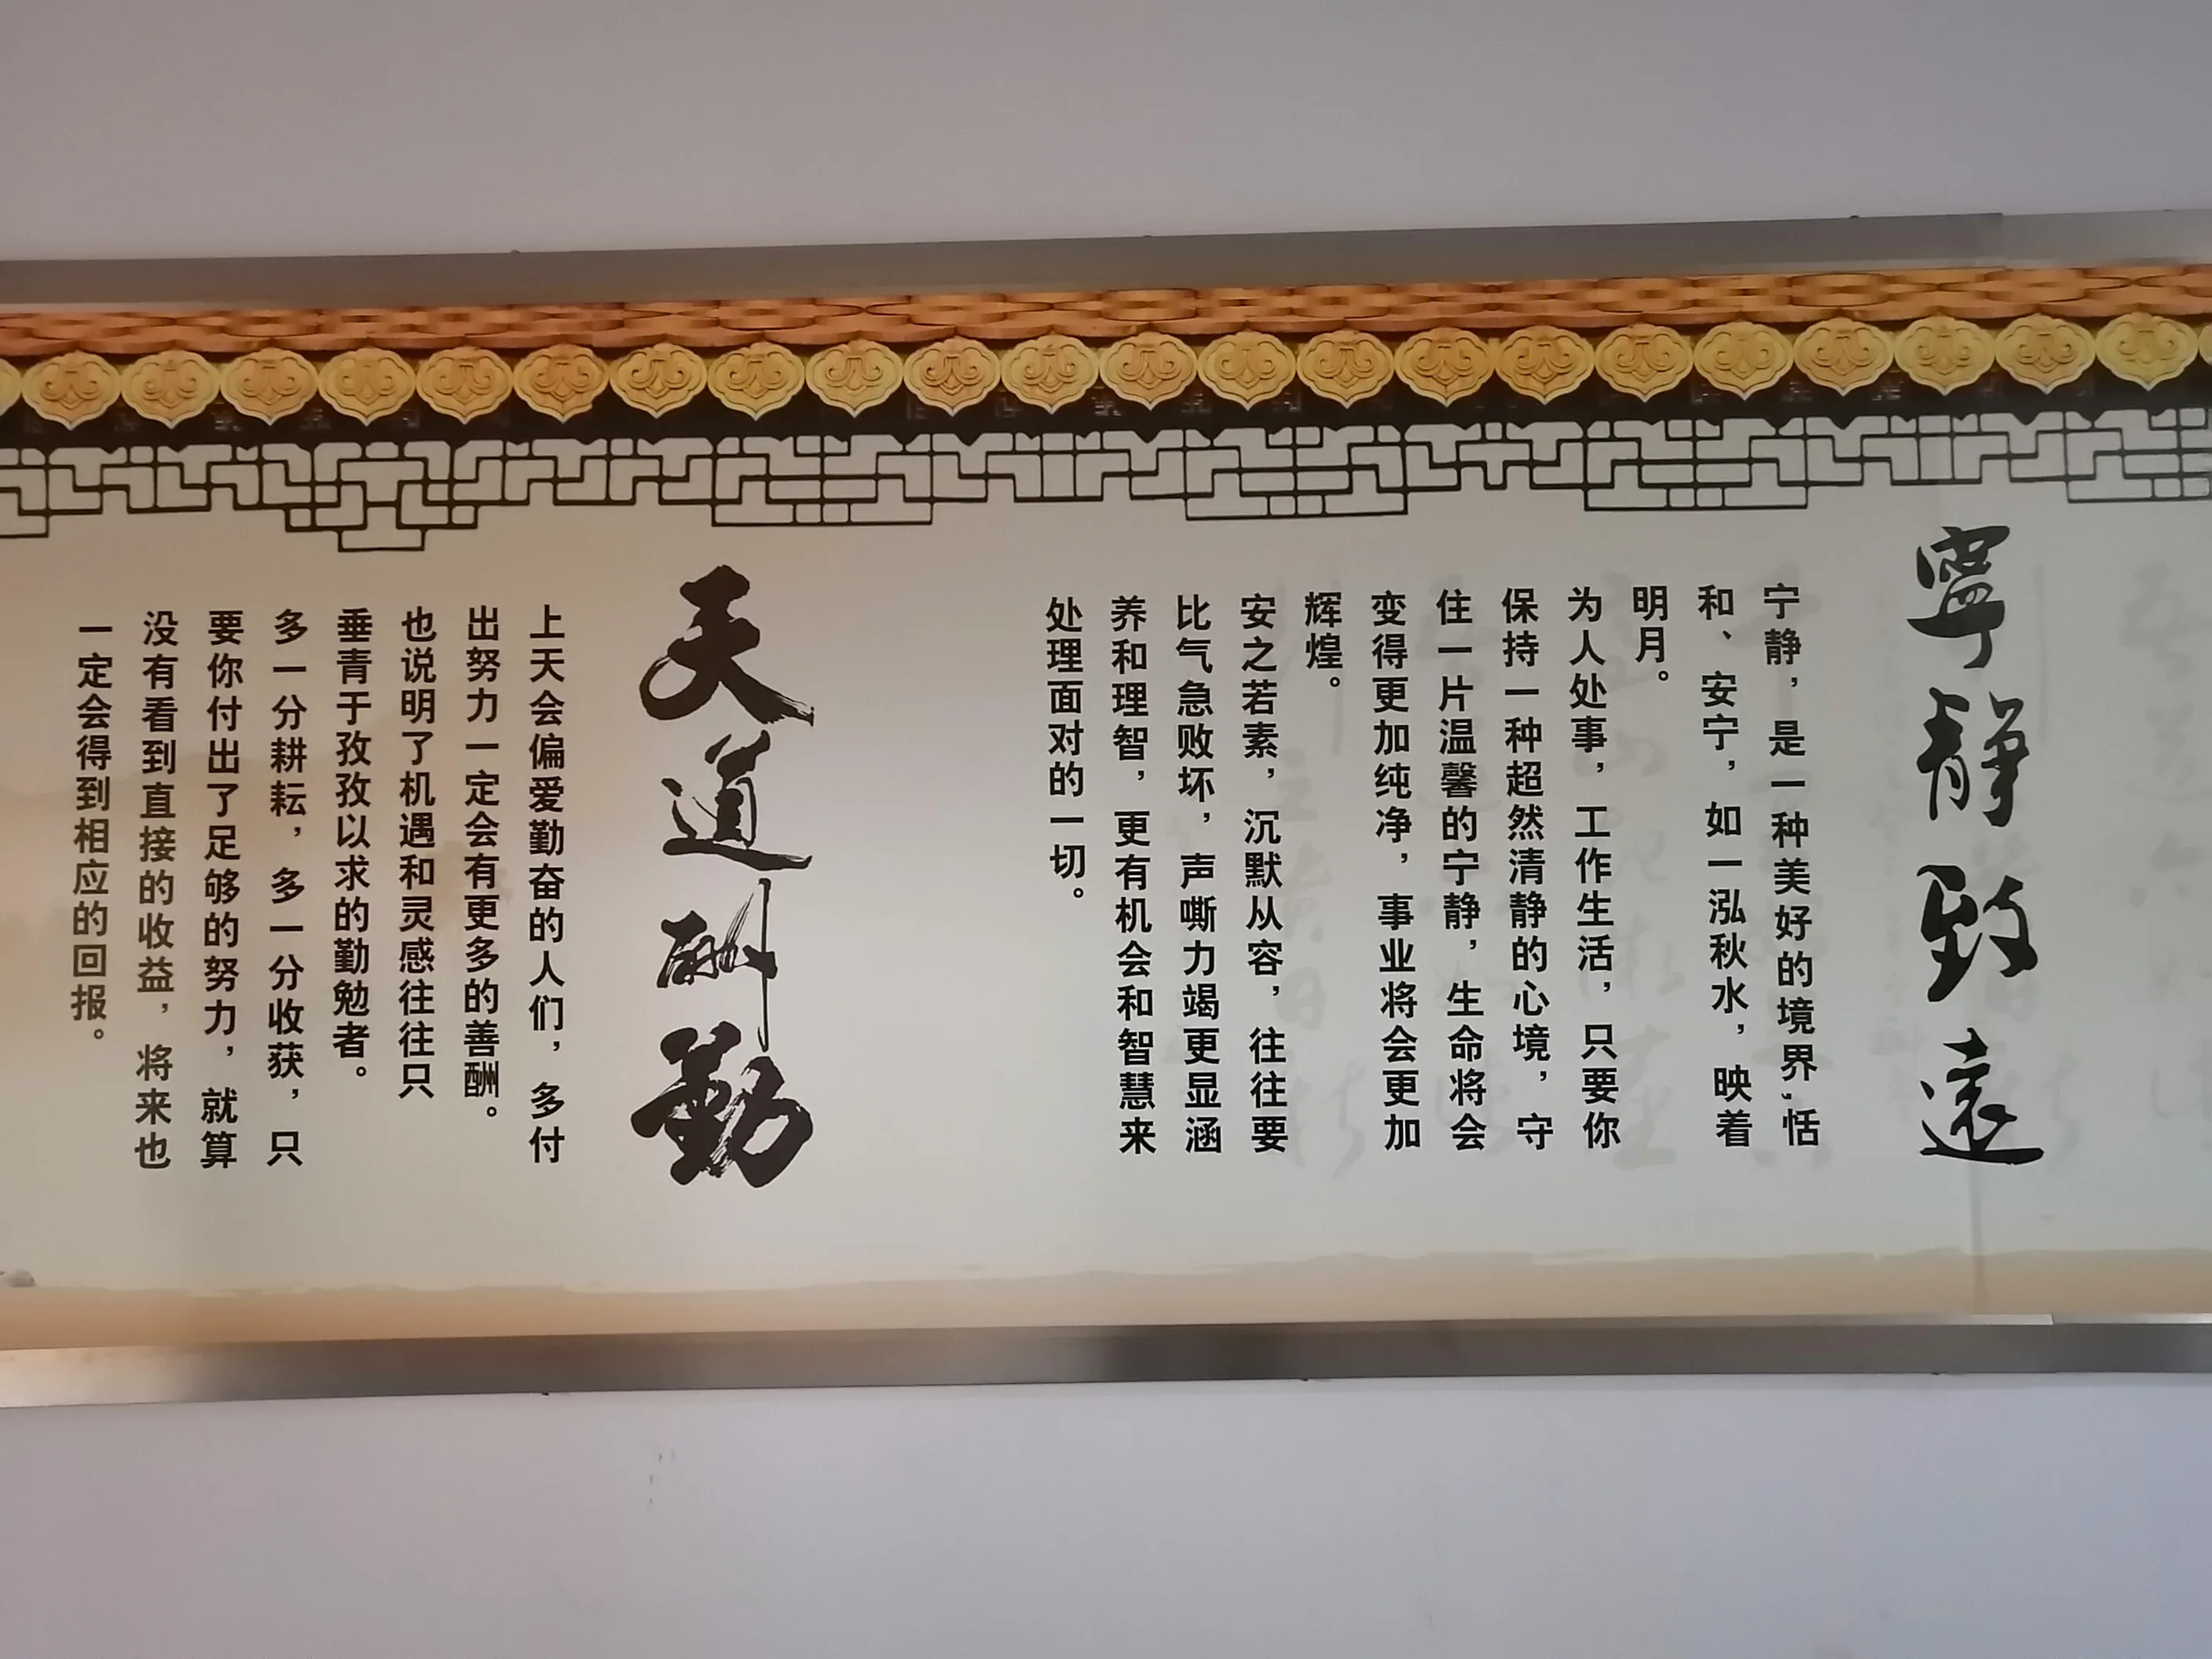 寧靜致遠
宁静，是一种美好的境界，恬
和、安宁，如一泓秋水，映着
明月。
为人处事，工作生活，只要你
保持一种超然清静的心境，守
住一片温馨的宁静，生命将会
变得更加纯净，事业将会更加
辉煌。
安之若素，沉默从容，往往要
比气急败坏，声嘶力竭更显涵
养和理智，更有机会和智慧来
处理面对的一切。
天道酬勤
上天会偏爱勤奋的人们，多付
出努力一定会有更多的善酬。
也说明了机遇和灵感往往只
垂青于孜孜以求的勤勉者。
多一分耕耘，多一分收获，只
要你付出了足够的努力，就算
没有看到直接的收益，将来也
一定会得到相应的回报。